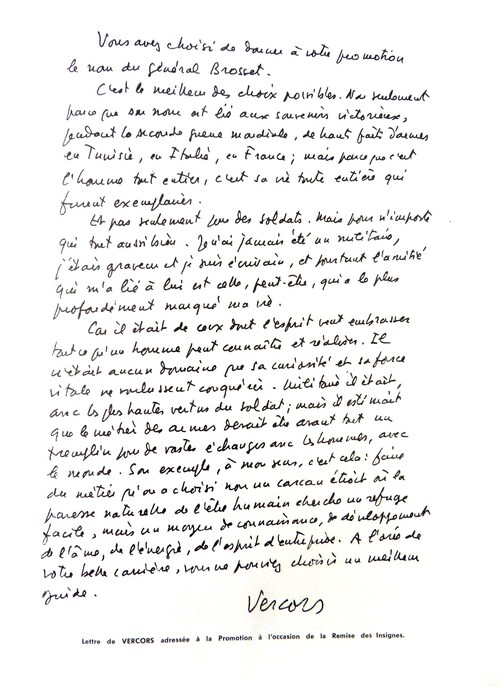 Vous avez choisi de donner à votre promotion
le nom du général Brosset.
C'est le meilleur des choix possibles. Non seulement
parce que son nom est lié aux souvenirs victorieux,
pendant la seconde guerre mondiale, de hauts faits d'armes
en Tunisie, en Italie, en France ; mais parce que c'est
l'homme tout entier, c'est sa vie toute entière qui
furent exemplaires.
Et pas seulement pour des soldats. Mais pour n'importe
qui tout aussi bien. Je n'ai jamais été un militaire,
j'étais graveur et je suis écrivain, et pourtant l'amitié
qui m'a lié à lui est celle, peut-être, qui a le plus
profondément marqué ma vie.
Car il était de ceux dont l'esprit veut embrasser
tout ce qu'un homme peut connaître et réaliser. Il
n'était aucun domaine que sa curiosité et sa force
vitale ne voulussent conquérir. Militaire il était,
avec les plus hautes vertus du soldat ; mais il estimait
que le métier des armes devait être avant tout un
tremplin pour de vastes échanges avec les hommes, avec
le monde. Son exemple, à mon sens, c'est cela : faire
du métier qu'on a choisi non un carcan étroit où la
paresse naturelle de l'être humain cherche un refuge
facile, mais un moyen de connaissance, de développement
de l'âme, de l'énergie, de l'esprit d'entreprise. A l'orée de
votre belle carrière, vous ne pouviez choisir un meilleur
guide.
Vercors
Lettre de VERCORS adressée à la Promotion à l'occasion de la Remise des Insignes.